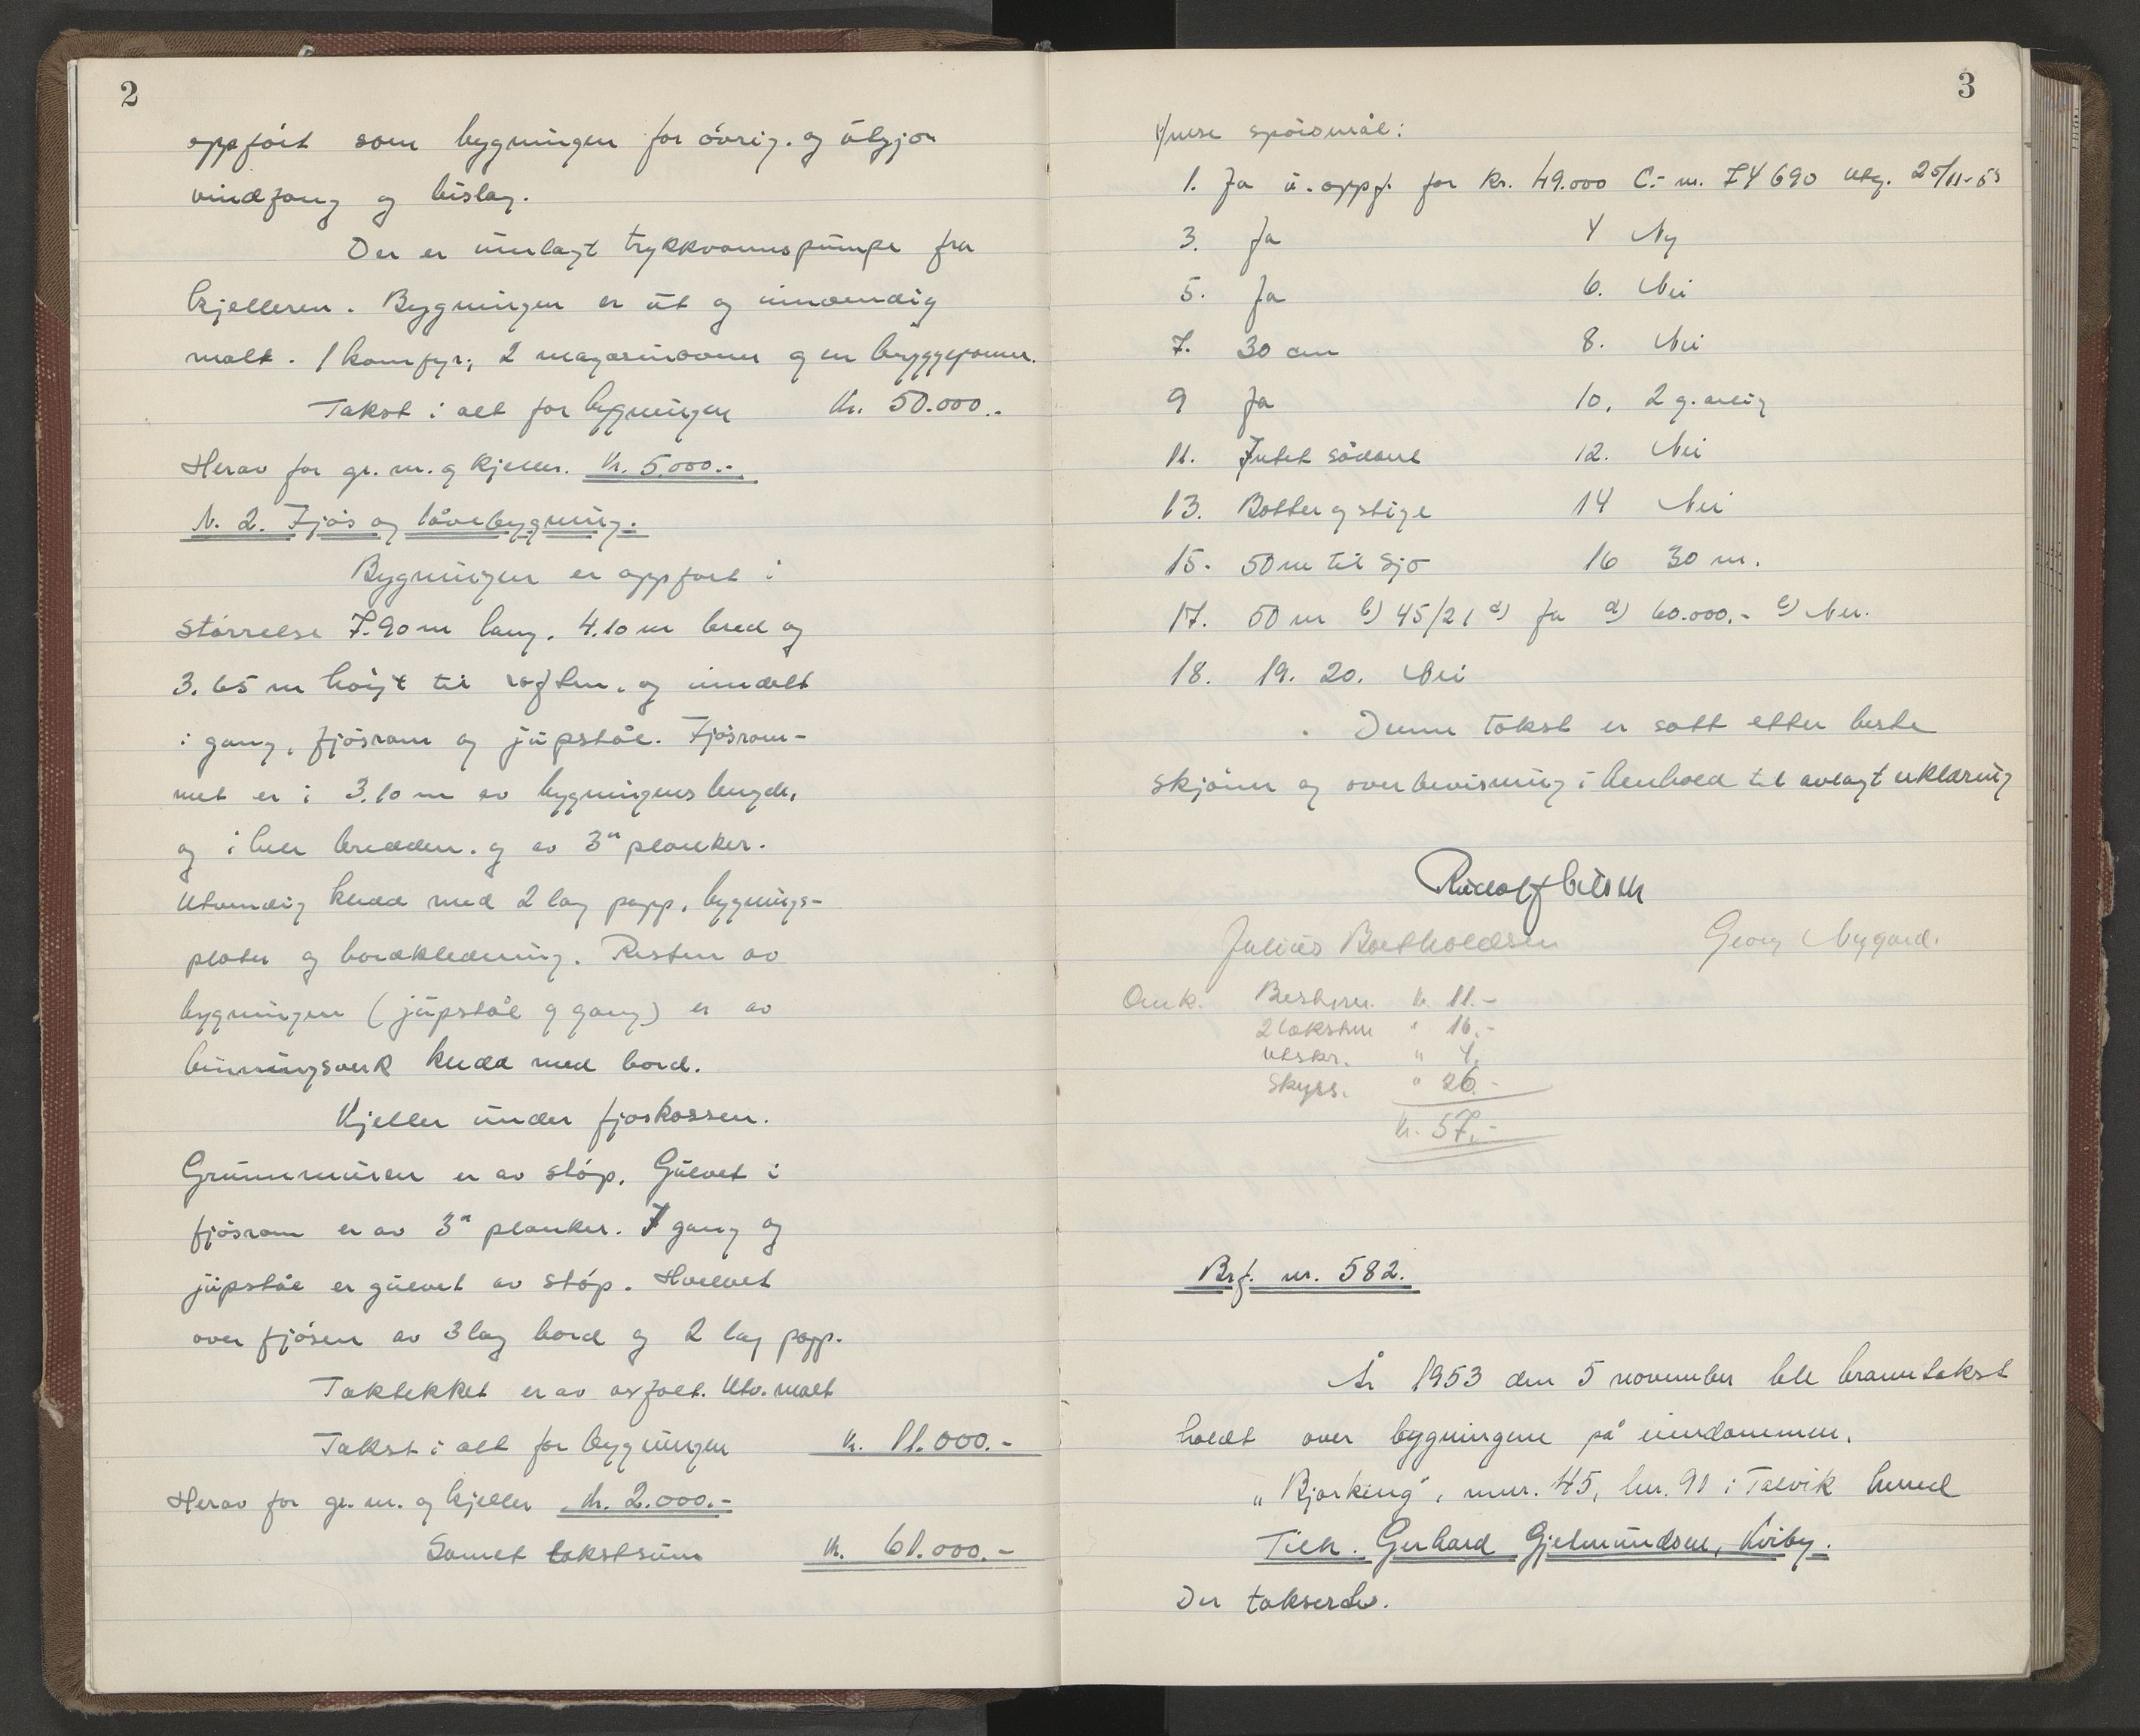 2
oppført som bygningen for øvrig. og utgjør
vindfang og bislag.
Der er innlagt trykkvannspumpe fra
kjelleren. Bygningen er ut og innvendig
malt. 1 komfyr, 2 magasinovner og en bryggepanne.
Takst i alt for bygningen kr. 50.000.-
Herav for gr. m. og kjeller. kr. 5.000.-
N. 2. Fjøs og låvebygning.
Bygningen er oppført i
størrelse 7.90 m lang, 4.10 m bred og
3.65 m høyt til raften. og inndelt
i gang, fjøsrom og jupstål. Fjøsrom-
met er i 3.10 m av bygningens lengde,
og i hele bredden. og av 3" planker.
Utvendig kledd med 2 lag papp, bygnings-
plater og bordkledning. Resten av
bygningen (jupstål og gang) er av
binningsverk kledd med bord.
Kjeller under fjøskassen.
Grunnmuren er av støp. Gulvet i
fjøsrom er av 3" planker. I gang og
jupstål er gulvet av støp. Hvelvet
over fjøsen av 3 lag bord og 2 lag papp.
Taktekket er av asfalt. Utv. malt
Takst i alt for bygningen kr. 11.000.-
Herav for gr. m. og kjeller kr. 2.000.-
Samlet takstsum kr. 61.000.-
3
spørsmål:
1. Ja u. oppf. for kr. 49.000 C.- nr. 74690 utg. 25/11-53
3. Ja 4 Ny
5. Ja 6. Nei
7. 30 cm 8. Nei
9 Ja 10. 2 g. årlig
11. Intet sådant 12. Nei
13. Bøtter og stige 14 Nei
15. 50 m til sjø 16 30 m.
17. 50 m b) 45/21 d) Ja d) 60.000.- e) Nei.
18. 19. 20. Nei
Denne takst er satt etter beste
skjønn og overbevisning i henhold til avlagt erklæring
Rudolf
Julius Bertholdsen Georg Nygård.
Omk. Bestyrer. kr. 11.-
2 takstm " 16.-
Utskr. " 4.
Skyss. " 26.-
kr. 57.-
Brf. nr. 582.
År 1953 den 5 november ble branntakst
holdt over bygningene på eiendommen.
"Bjørkeng", mnr. 45, bnr. 90 i Talvik herred
Tilh. Gerhard Gjetmundsen, Kviby.
Der takserdes.